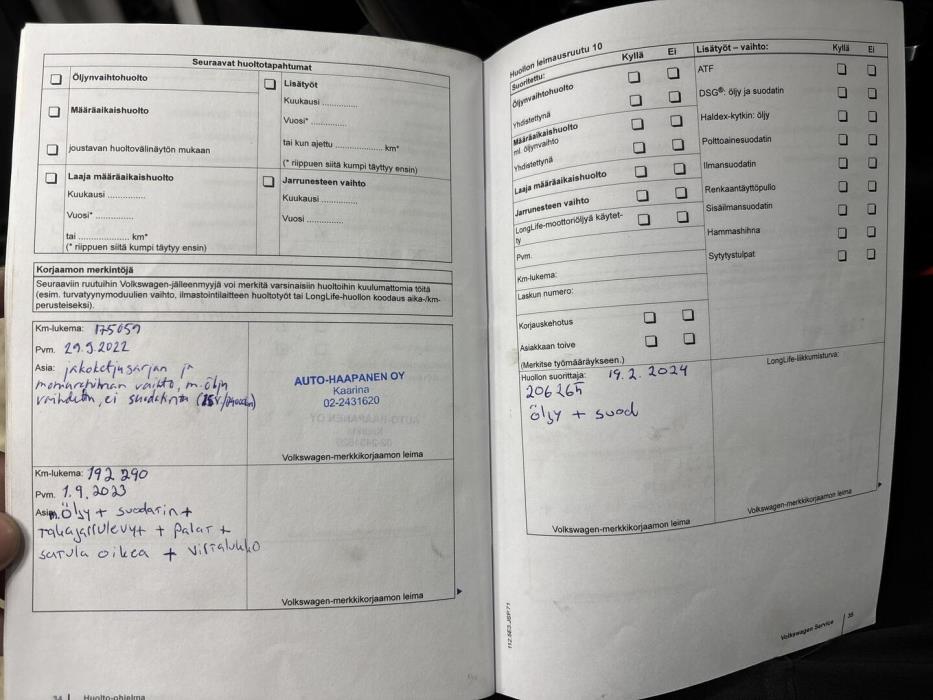 Seuraavat huoltotapahtumat
Öljynvaihtohuolto
Määräaikaishuolto
joustavan huoltovälinäytön mukaan
Laaja määräaikaishuolto
Kuukausi ...............
Vuosi* ..............
tai .................... km*
(* riippuen siitä kumpi täytyy ensin)
Lisätyöt
Kuukausi ..............
Vuosi* ..............
tai kun ajettu ................... km*
(* riippuen siitä kumpi täyttyy ensin)
Jarrunesteen vaihto
Kuukausi ..............
Vuosi ..............
Korjaamon merkintöjä
Seuraaviin ruutuihin Volkswagen-jälleenmyyjä voi merkitä varsinaisiin huoltoihin kuulumattomia töitä
(esim. turvatyynymoduulien vaihto, ilmastointilaitteen huoltotyöt tai LongLife-huollon koodaus aika-/km-
perusteiseksi).
Km-lukema: 175059
Pvm. 29.9.2022
Asia: jakoketjusarjan ja
vaihto, m.öljyn
ei
AUTO-HAAPANEN OY
Kaarina
02-2431620
Volkswagen-merkkikorjaamon leima
Km-lukema: 192 290
Pvm. 1.9.2023
Asia: m.öljy + suodatin +
takajarrulevyt + palat +
satula oikea + virtalukko
Volkswagen-merkkikorjaamon leima
34 | Huolto-ohjelma
Huollon leimausruutu 10
Suoritettu: Kyllä Ei
Öljynvaihtohuolto
Yhdistettynä
Määräaikaishuolto
ml. öljynvaihto
Yhdistettynä
Laaja määräaikaishuolto
Jarrunesteen vaihto
LongLife-moottoriöljyä käytet-
ty
Pvm.
Km-lukema:
Laskun numero:
Korjauskehotus
Asiakkaan toive
(Merkitse työmääräykseen.)
Lisätyöt – vaihto: Kyllä Ei
ATF
DSG®: öljy ja suodatin
Haldex-kytkin: öljy
Polttoainesuodatin
Ilmansuodatin
Renkaantäyttöpullo
Sisäilmansuodatin
Hammashihna
Sytytystulpat
Huollon suorittaja: 19.2.2024
206265
öljy + suod
Volkswagen-merkkikorjaamon leima
LongLife-liikkumisturva:
Volkswagen-merkkikorjaamon leima
112.5E3.JSP.71
Volkswagen Service | 35